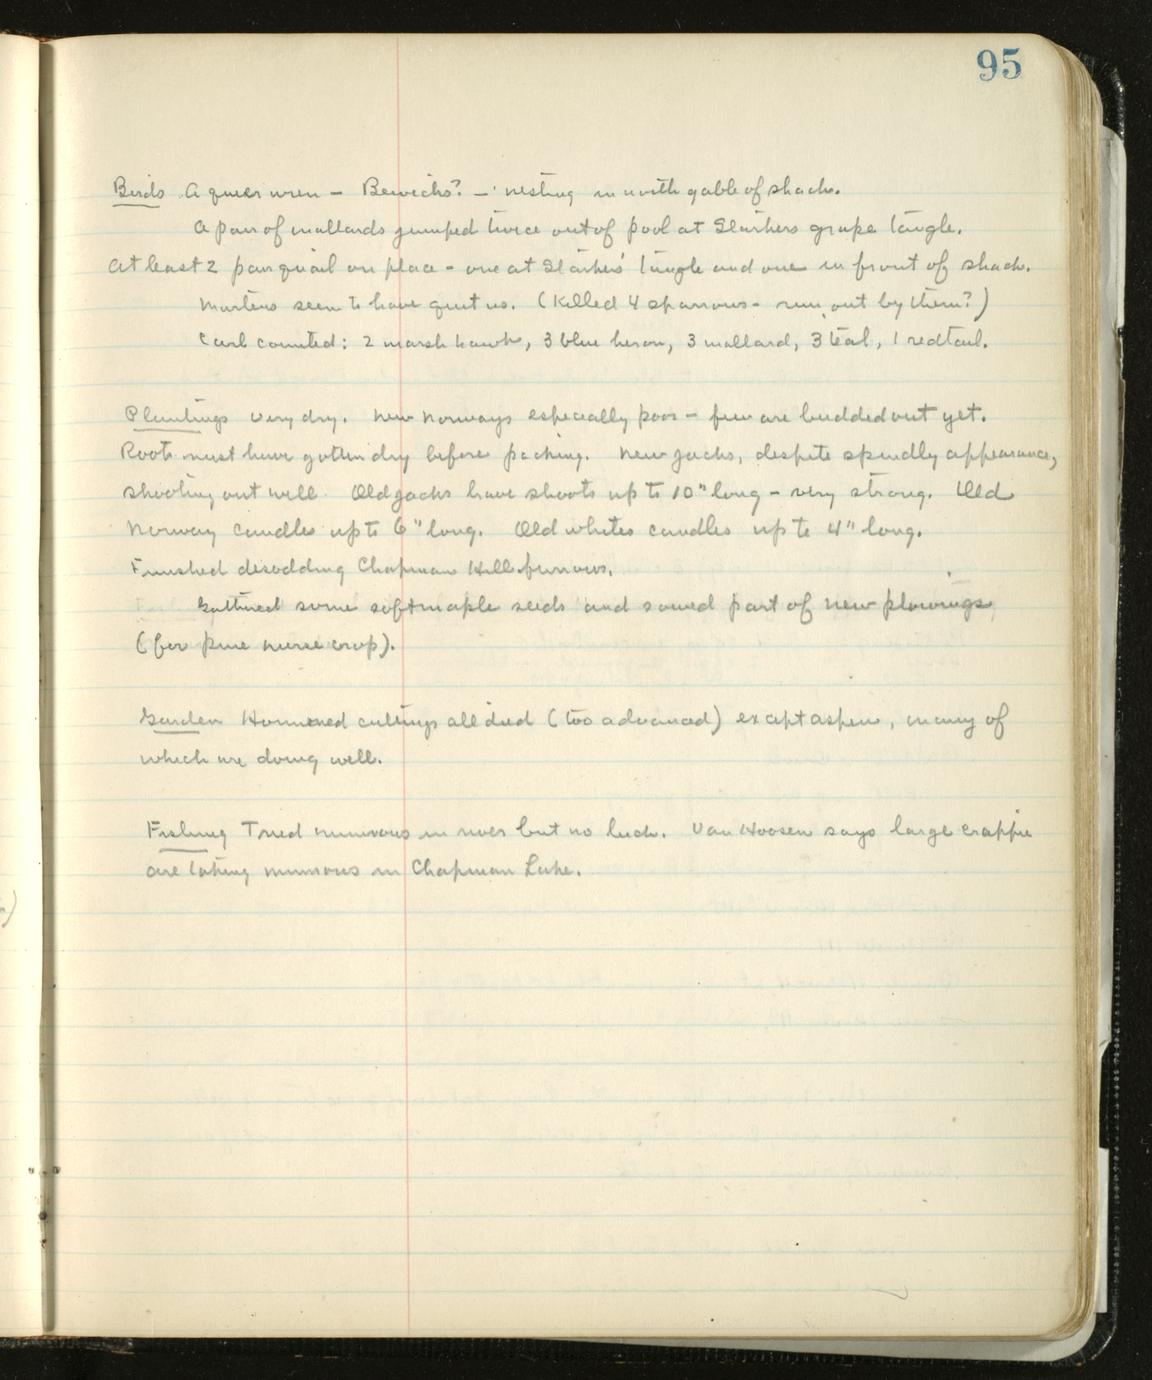 95
Birds A queer wren - Bewicks? - nesting in north gable of shack.
A pair of mallards jumped twice out of pool at Slaiters grape tangle.
At least 2 pair quail on place - one at Slaiters' tangle and one in front of shack.
Martens seem to have quit us. (Killed 4 sparrows - run out by them?)
Carl counted: 2 marsh hawk, 3 blue heron, 3 mallard, 3 teal, 1 redtail.
Plantings very dry. New Norways especially poor - few are budded out yet.
Roots must have gotten dry before packing. New jacks, despite spindly appearance,
shooting out well. Old jacks have shoots up to 10" long - very strong. Old
Norway candles up to 6" long. Old whites candles up to 4" long.
Finished desodding Chapman Hill furrows.
Gathered some soft maple seeds and sowed part of new plowings
(for pine nurse crop).
Garden Hormoned cuttings all died (too advanced) except aspen, many of
which are doing well.
Fishing Tried minnows in river but no luck. Van Hoosen says large crappie
are taking minnows in Chapman Lake.